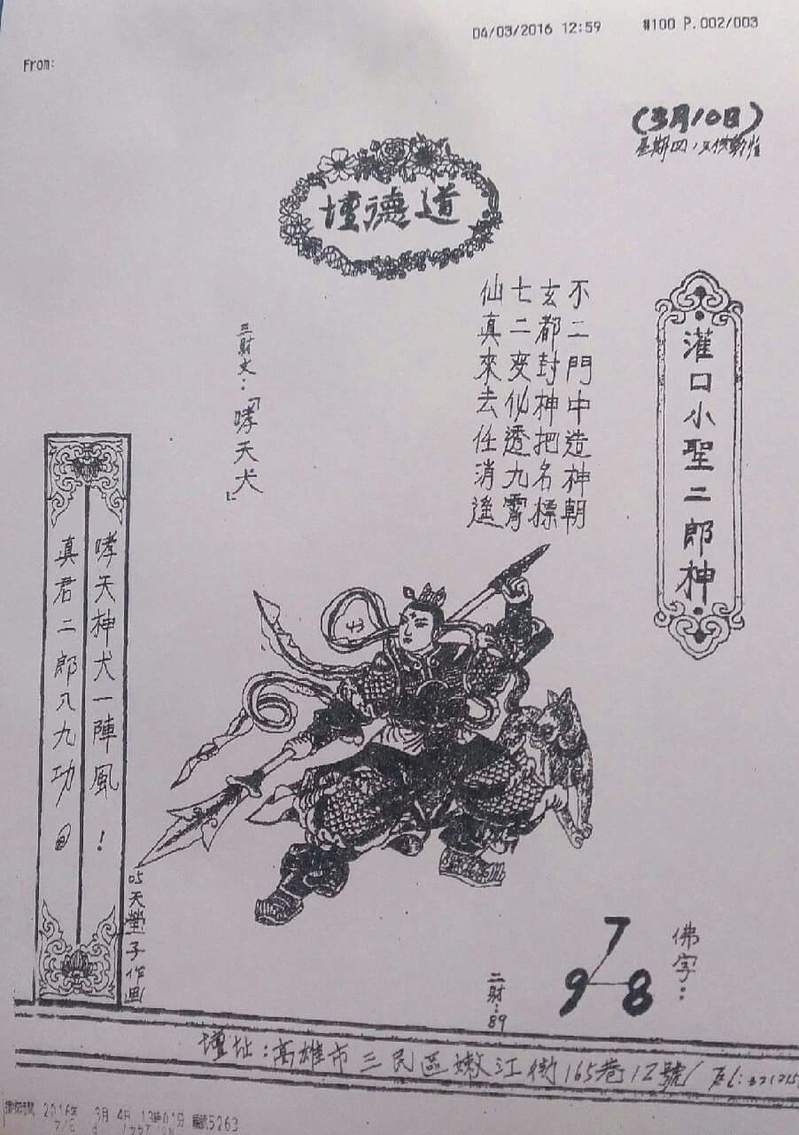 04/03/2016 12:59 #100 P.002/003
From:
(3月10日)
星期四
道德壇
灌口小聖二郎神
不二門中造神朝
玄都封神把名標
七二变似透九霄
仙真來去任消遙
三財支:「哮天犬」
哮天神犬一陣風!
真君二郎八九功@
05天瑩子作画
佛字:
7
9 8
二財:89
壇址:高雄市三民區嫩江街165巷12號
2016年 3月 4日 13時01分 5263